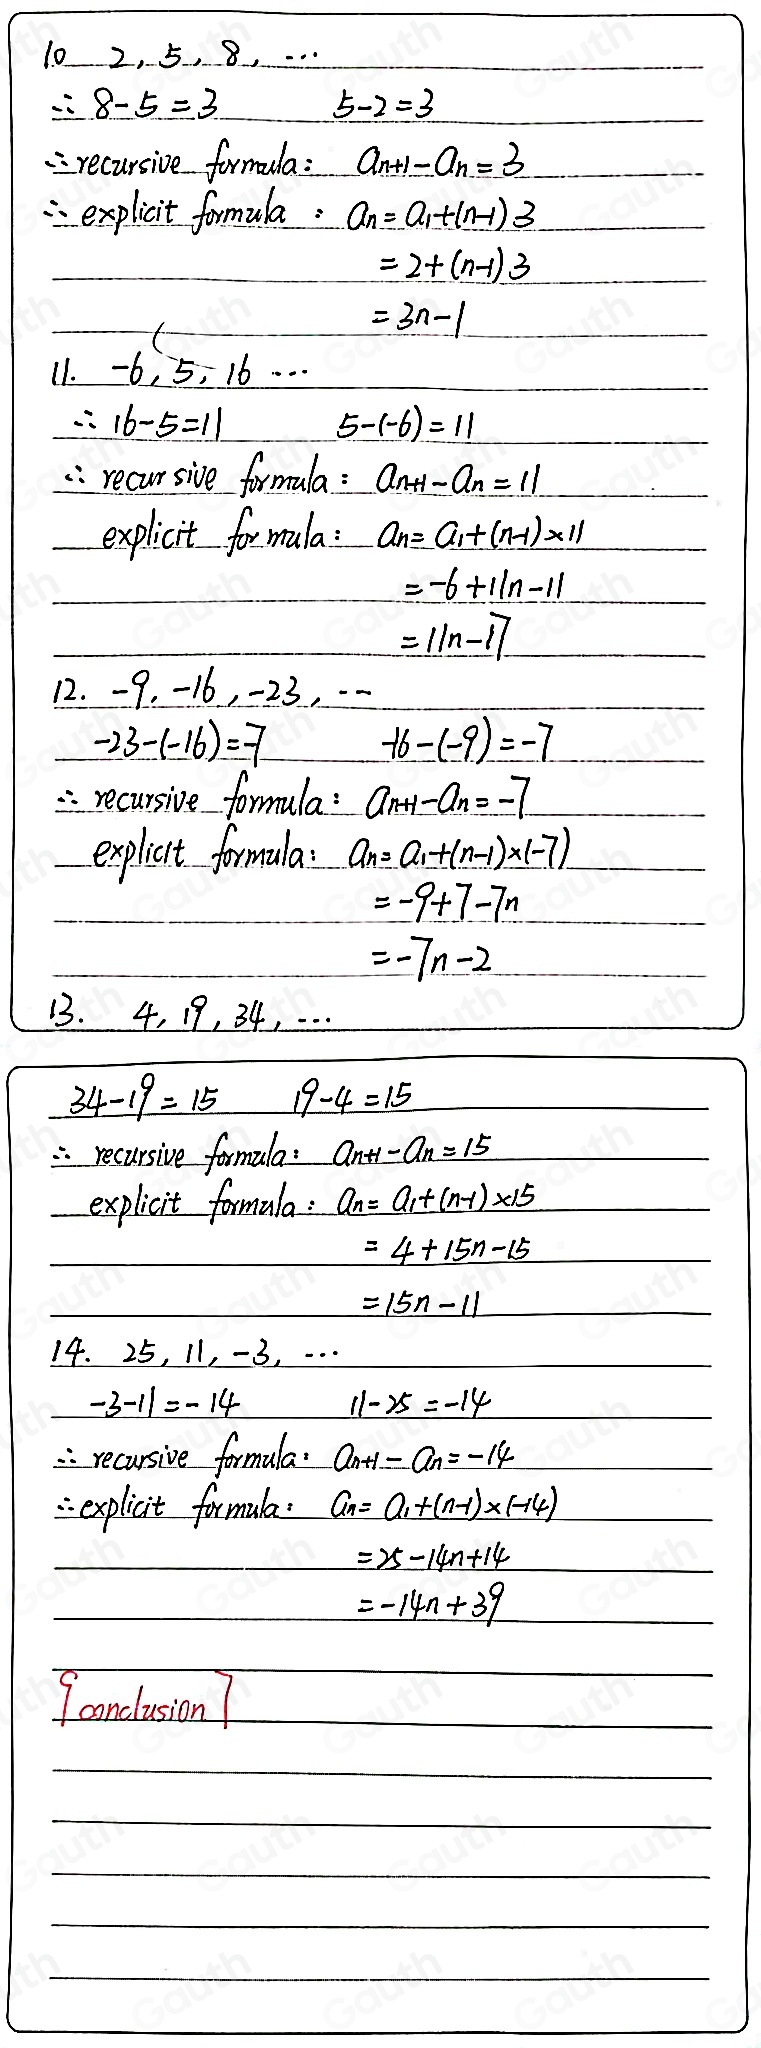 10 2, 5, 8, ...
∵ 8-5=3 5-2=3
∴ recursive formula: aₙ₊₁-aₙ=3
∴ explicit formula: aₙ=a₁+(n-1)3
=2+(n-1)3
=3n-1
11. -6, 5, 16 ...
∵ 16-5=11 5-(-6)=11
∴ recursive formula: aₙ₊₁-aₙ=11
explicit formula: aₙ=a₁+(n-1)×11
=-6+11n-11
=11n-17
12. -9, -16, -23, ...
-23-(-16)=-7 -16-(-9)=-7
∴ recursive formula: aₙ₊₁-aₙ=-7
explicit formula: aₙ=a₁+(n-1)×(-7)
=-9+7-7n
=-7n-2
13. 4, 19, 34, ...
34-19=15 19-4=15
∴ recursive formula: aₙ₊₁-aₙ=15
explicit formula: aₙ=a₁+(n-1)×15
=4+15n-15
=15n-11
14. 25, 11, -3, ...
-3-11=-14 11-25=-14
∴ recursive formula: aₙ₊₁-aₙ=-14
∴ explicit formula: aₙ=a₁+(n-1)×(-14)
=25-14n+14
=-14n+39
[conclusion]